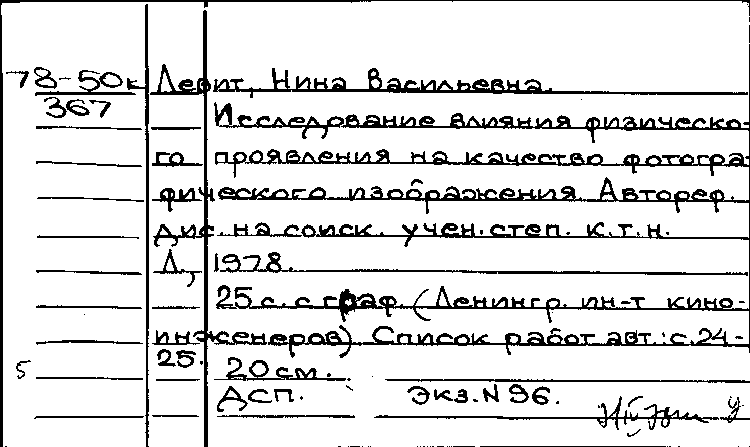 78-50к Левит, Нина Васильевна.
367
Исследование влияния физическо-
го проявления на качество фотогра-
фического изображения Автореф.
дис. на соиск. учен. степ. к.т.н.
Л., 1978.
25 с. с граф. (Ленингр. ин-т кино-
инженеров) Список работ авт.: с. 24-
25.
5 20 см.
ДСП. Экз. N 96.